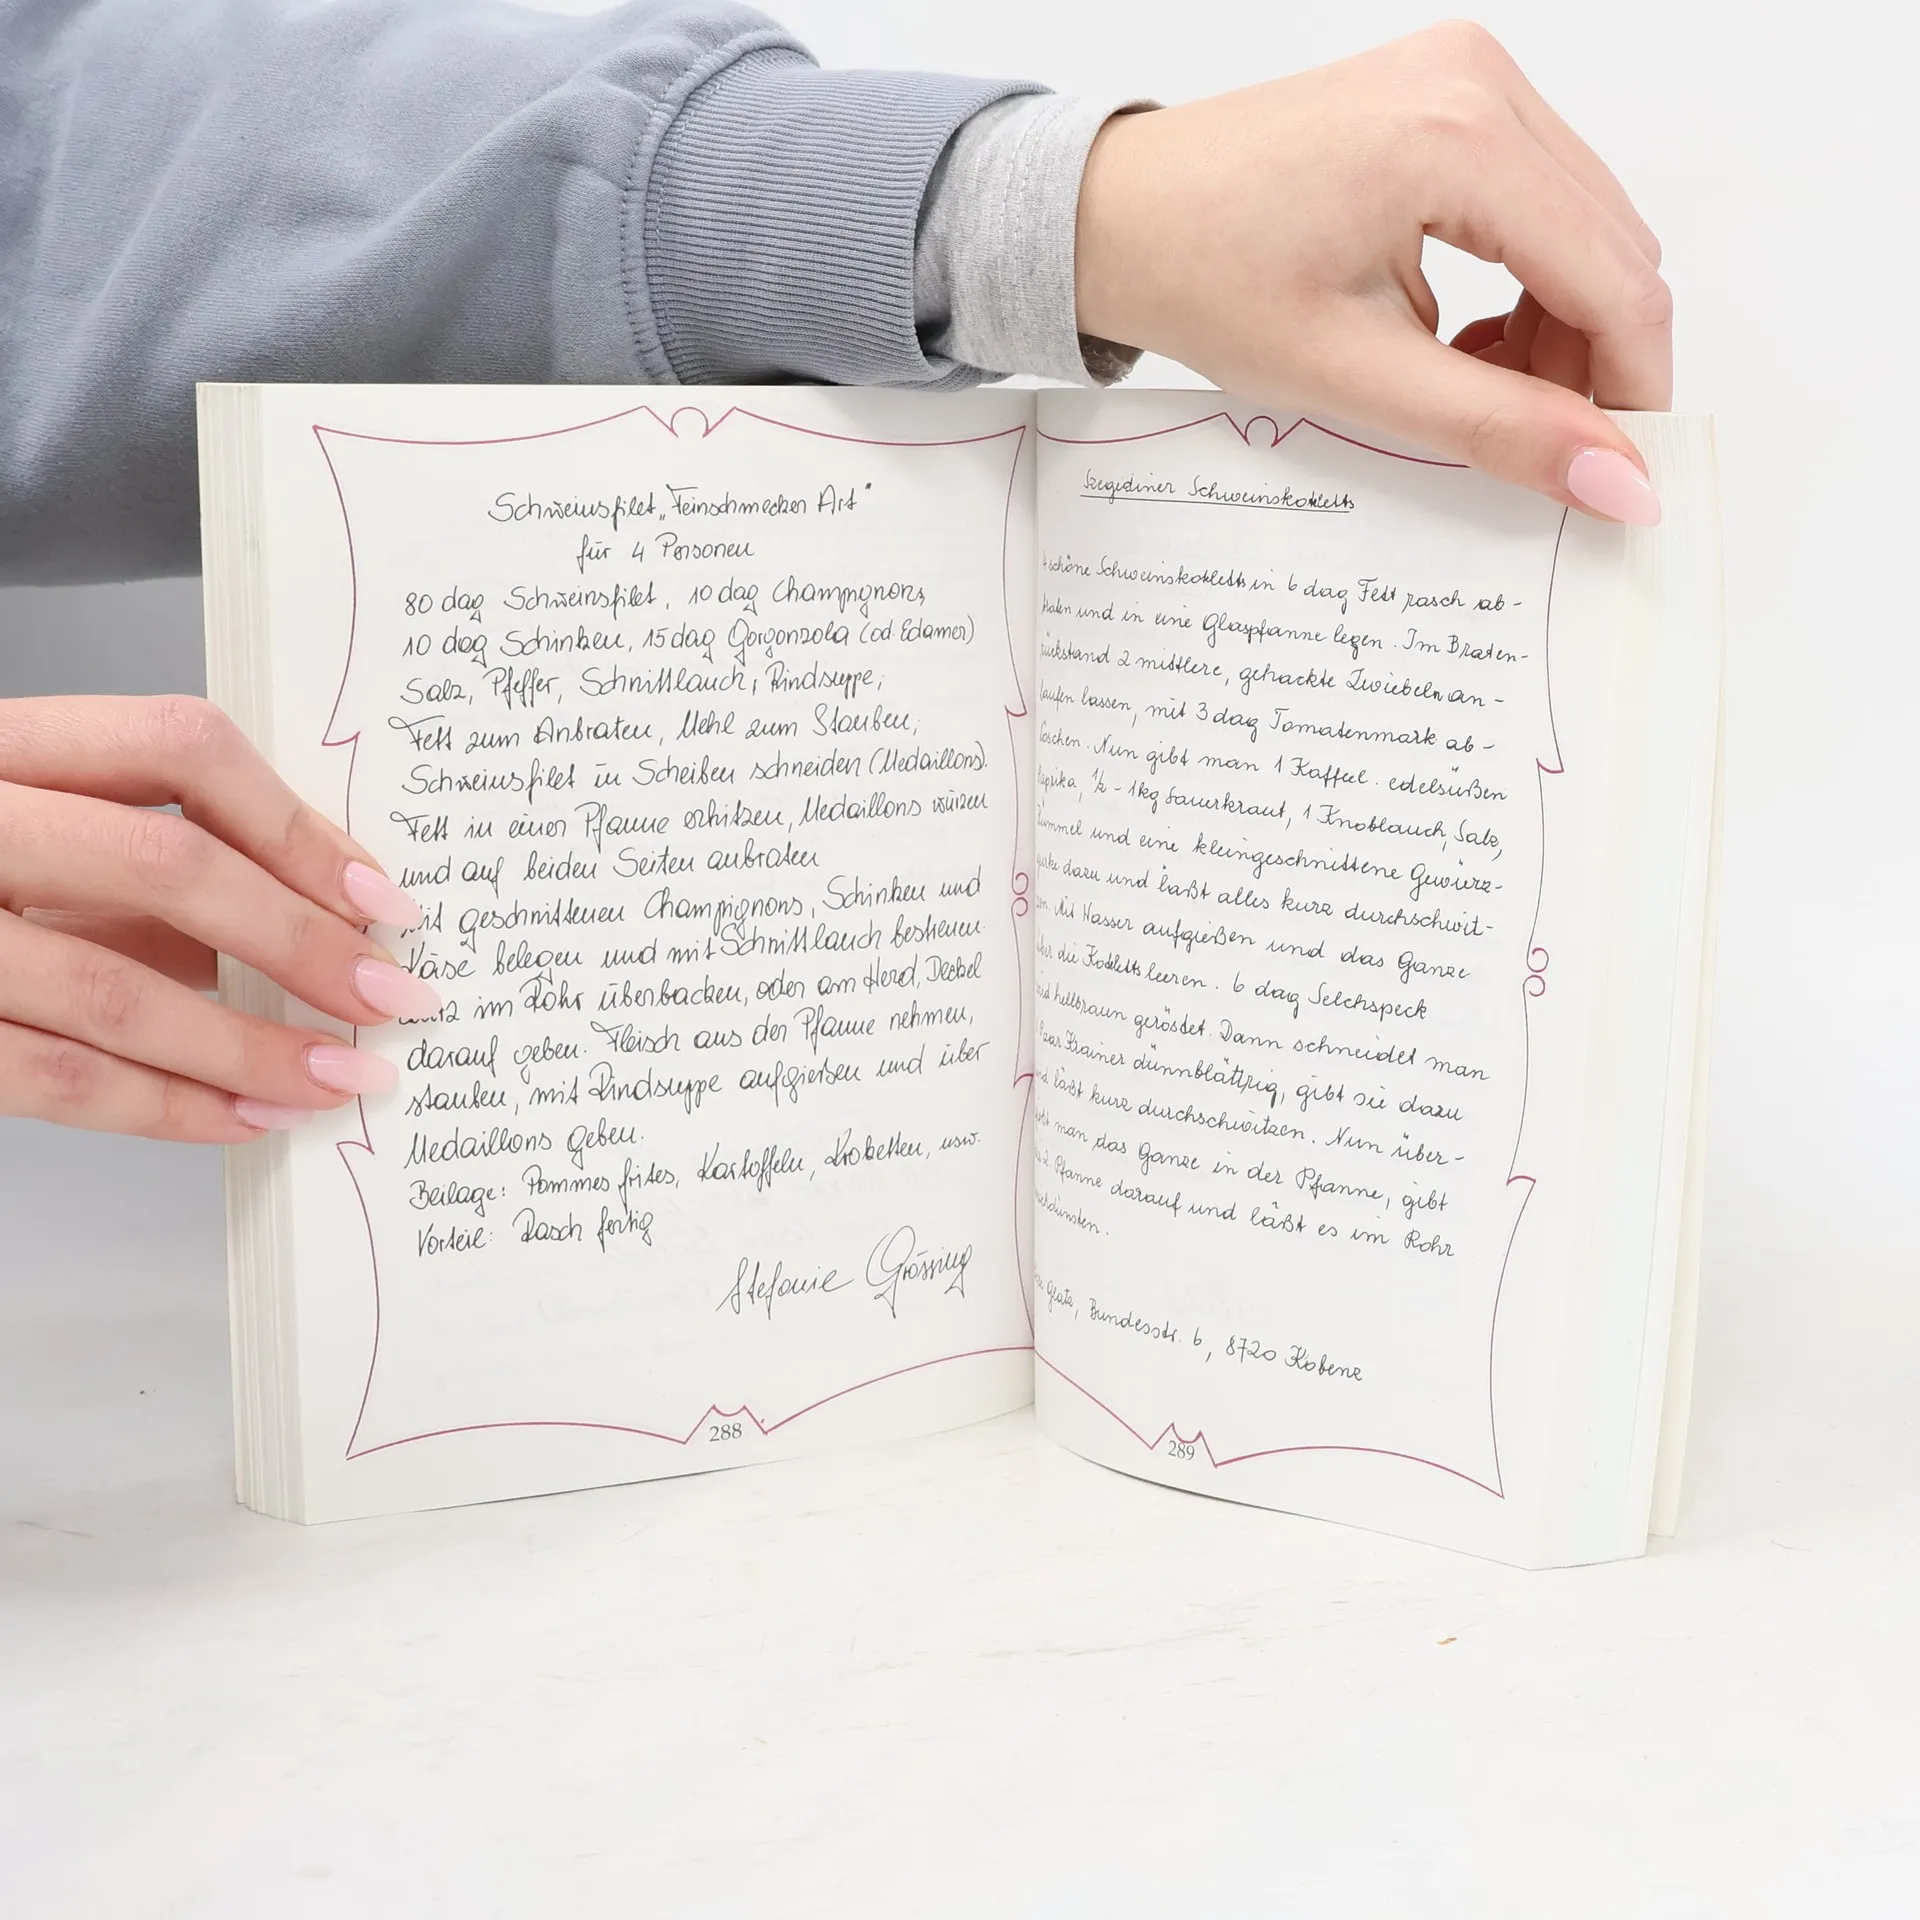 Schweinsfilet „Feinschmecker Art"
für 4 Personen
80 dag Schweinsfilet, 10 dag Champignons
10 dag Schinken, 15 dag Gorgonzola (od. Edamer)
Salz, Pfeffer, Schnittlauch, Rindsuppe,
Fett zum Anbraten, Mehl zum Stauben,
Schweinsfilet in Scheiben schneiden (Medaillons).
Fett in einer Pfanne erhitzen, Medaillons würzen
und auf beiden Seiten anbraten
geschnittenen Champignons, Schinken und
Käse belegen und mit Schnittlauch bestreuen
im Rohr überbacken, oder am Herd, Deckel
darauf geben. Fleisch aus der Pfanne nehmen,
stauben, mit Rindsuppe aufgießen und über
Medaillons geben.
Beilage: Pommes frites, Kartoffeln, Kroketten, usw.
Vorteil: Rasch fertig
Stefanie Grössing
288
Szegediner Schweinskoteletts
4 schöne Schweinskoteletts in 6 dag Fett rasch ab-
braten und in eine Glaspfanne legen. Im Braten-
rückstand 2 mittlere, gehackte Zwiebeln an-
laufen lassen, mit 3 dag Tomatenmark ab-
löschen. Nun gibt man 1 Kaffeel. edelsüßen
Paprika, ½ - 1kg Sauerkraut, 1 Knoblauch, Salz,
Kümmel und eine kleingeschnittene Gewürz-
gurke dazu und läßt alles kurz durchschwit-
zen. Mit Wasser aufgießen und das Ganze
über die Koteletts leeren. 6 dag Selchspeck
wird hellbraun geröstet. Dann schneidet man
1 Paar Krainer dünnblättrig, gibt sie dazu
und läßt kurz durchschwitzen. Nun über-
man das Ganze in der Pfanne, gibt
2. Pfanne darauf und läßt es im Rohr
Glatz, Bundesstr. 6, 8720 Kobenz
289